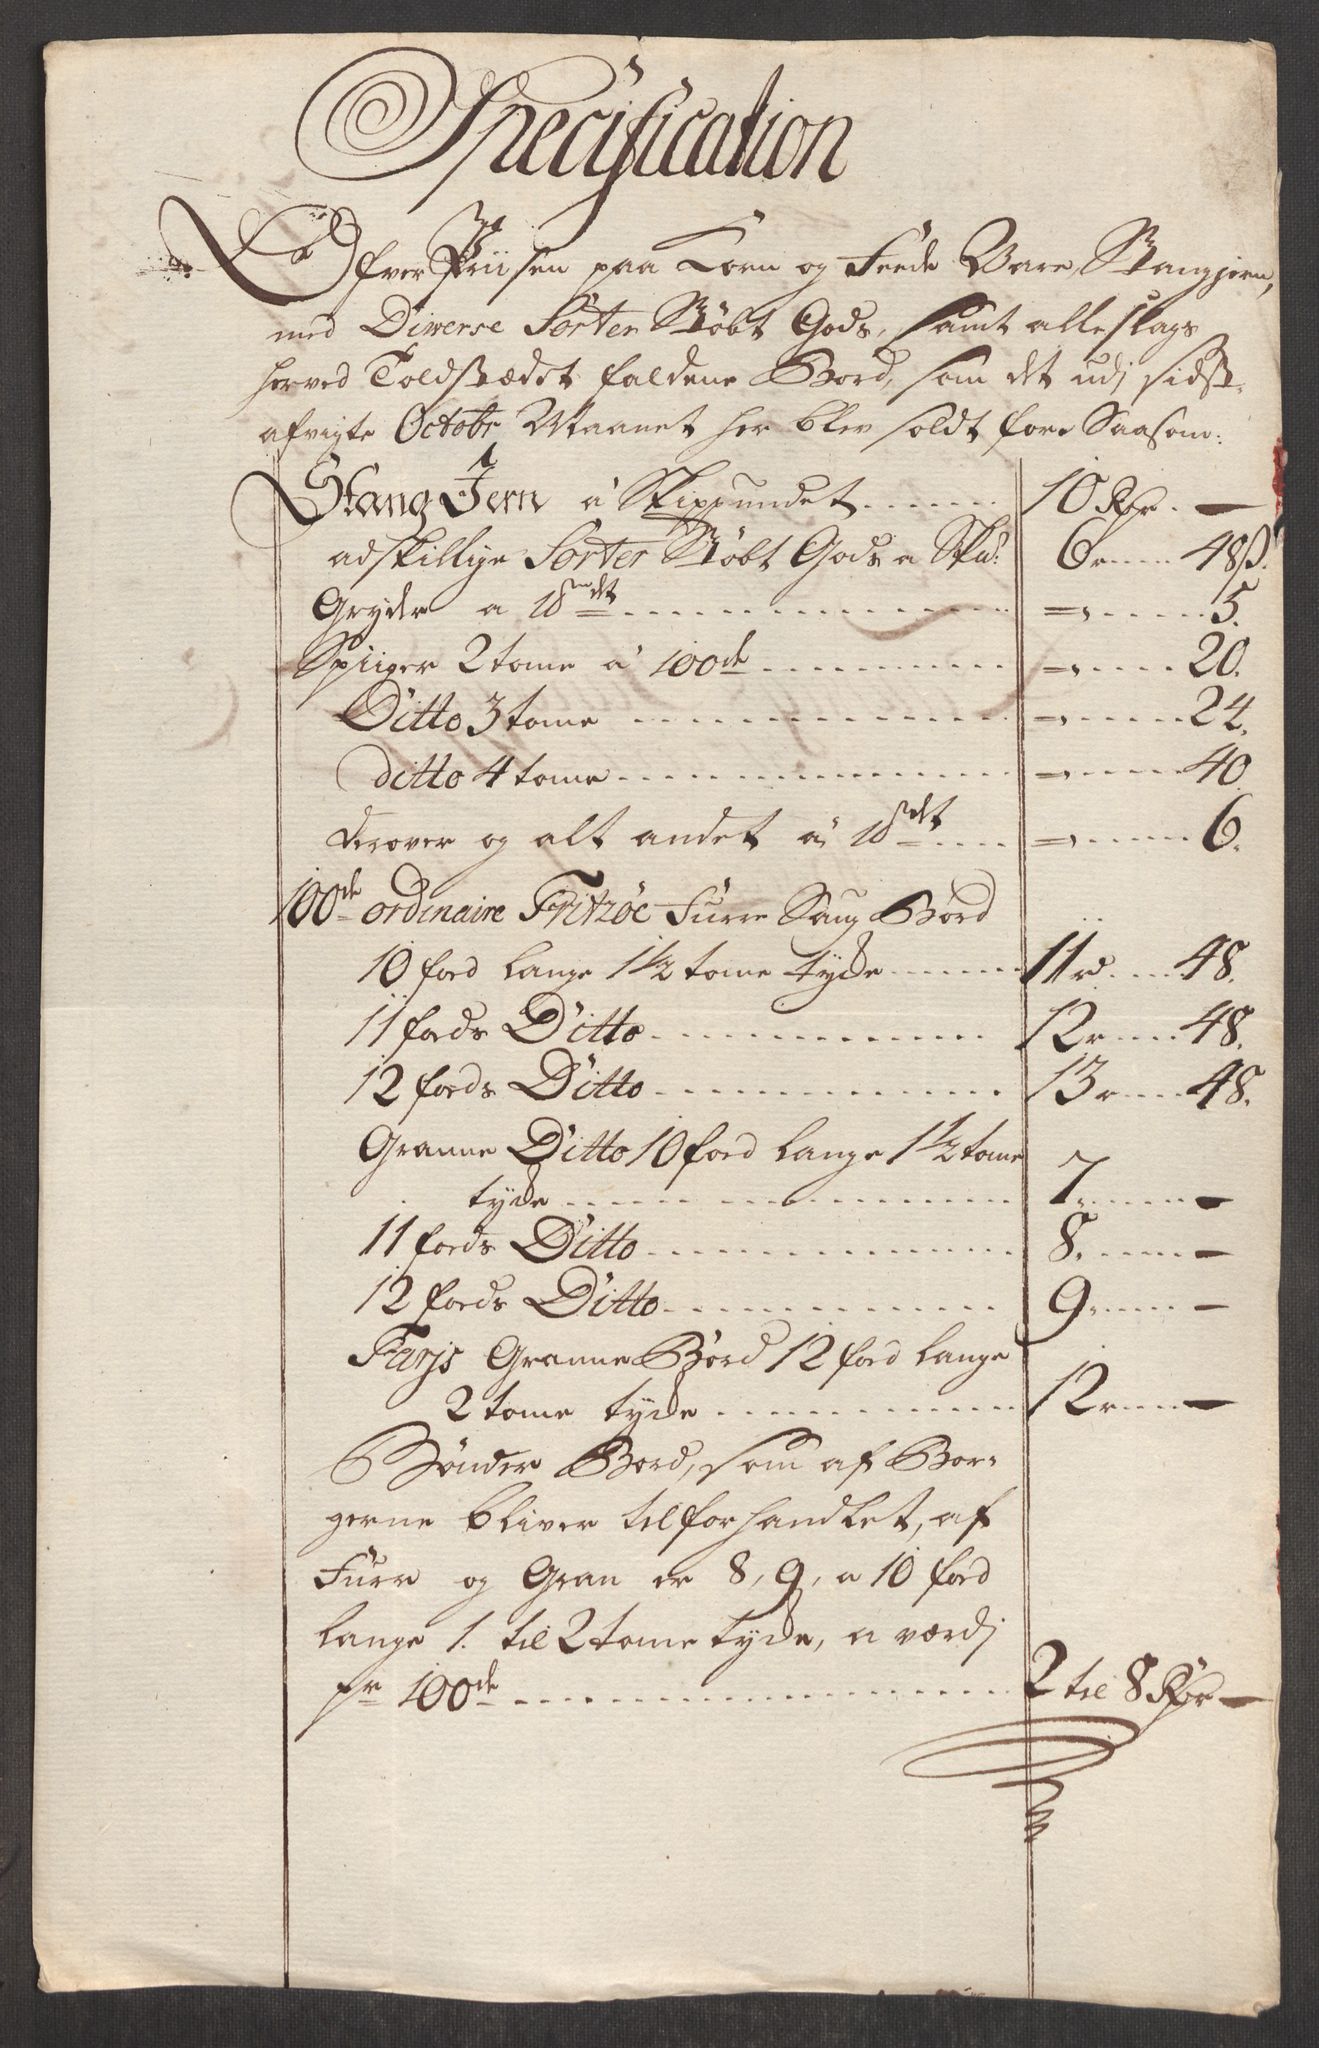 Specification
Ofver Priisen paa Korn og Feede Vare, Stangjern,
med Diverse Sorter Støbt Gods, samt alle slags
herved Toldstædet faldene Bord, som det udj sidst-
afvigte Octobr Maanet her blev soldt fore Saasom:
Stang Jern á Skippundet ...... 10 Rdr. —
adskillige Sorter Støbt Gods a Skd: 6 r ..... 48 ß.
Gryder a 1 ... =, ..... 5.
Spiiger 2 tome á 100de ... =, ..... 20.
Ditto 3 tome ... =, ..... 24.
ditto 4 tome ... =, ..... 40
derover og alt andet á 1 ... =, ..... 6.
100de ordinaire Fritzøe Furre Saug Bord
10 ford lange 1½ tome tyde ... 11 rd .... 48.
11 fords Ditto ... 12 r .... 48.
12 fords Ditto ... 13 r .... 48.
Granne Ditto 10 ford lange 1½ tome
tyde ... 7. ..... —
11 fords Ditto ... 8. ..... —
12 fords Ditto ... 9 ..... —
Farjs Granne Bord 12 ford lange
2 tome tyde ... 12 r .... —
Bønder Bord, som af Bor-
gerne bliver tilforhandlet, af
Furr og Gran er 8, 9, a 10 ford
lange 1. til 2 tome tyde, a værdj
pr 100de ... 2 til 8 Rdr —